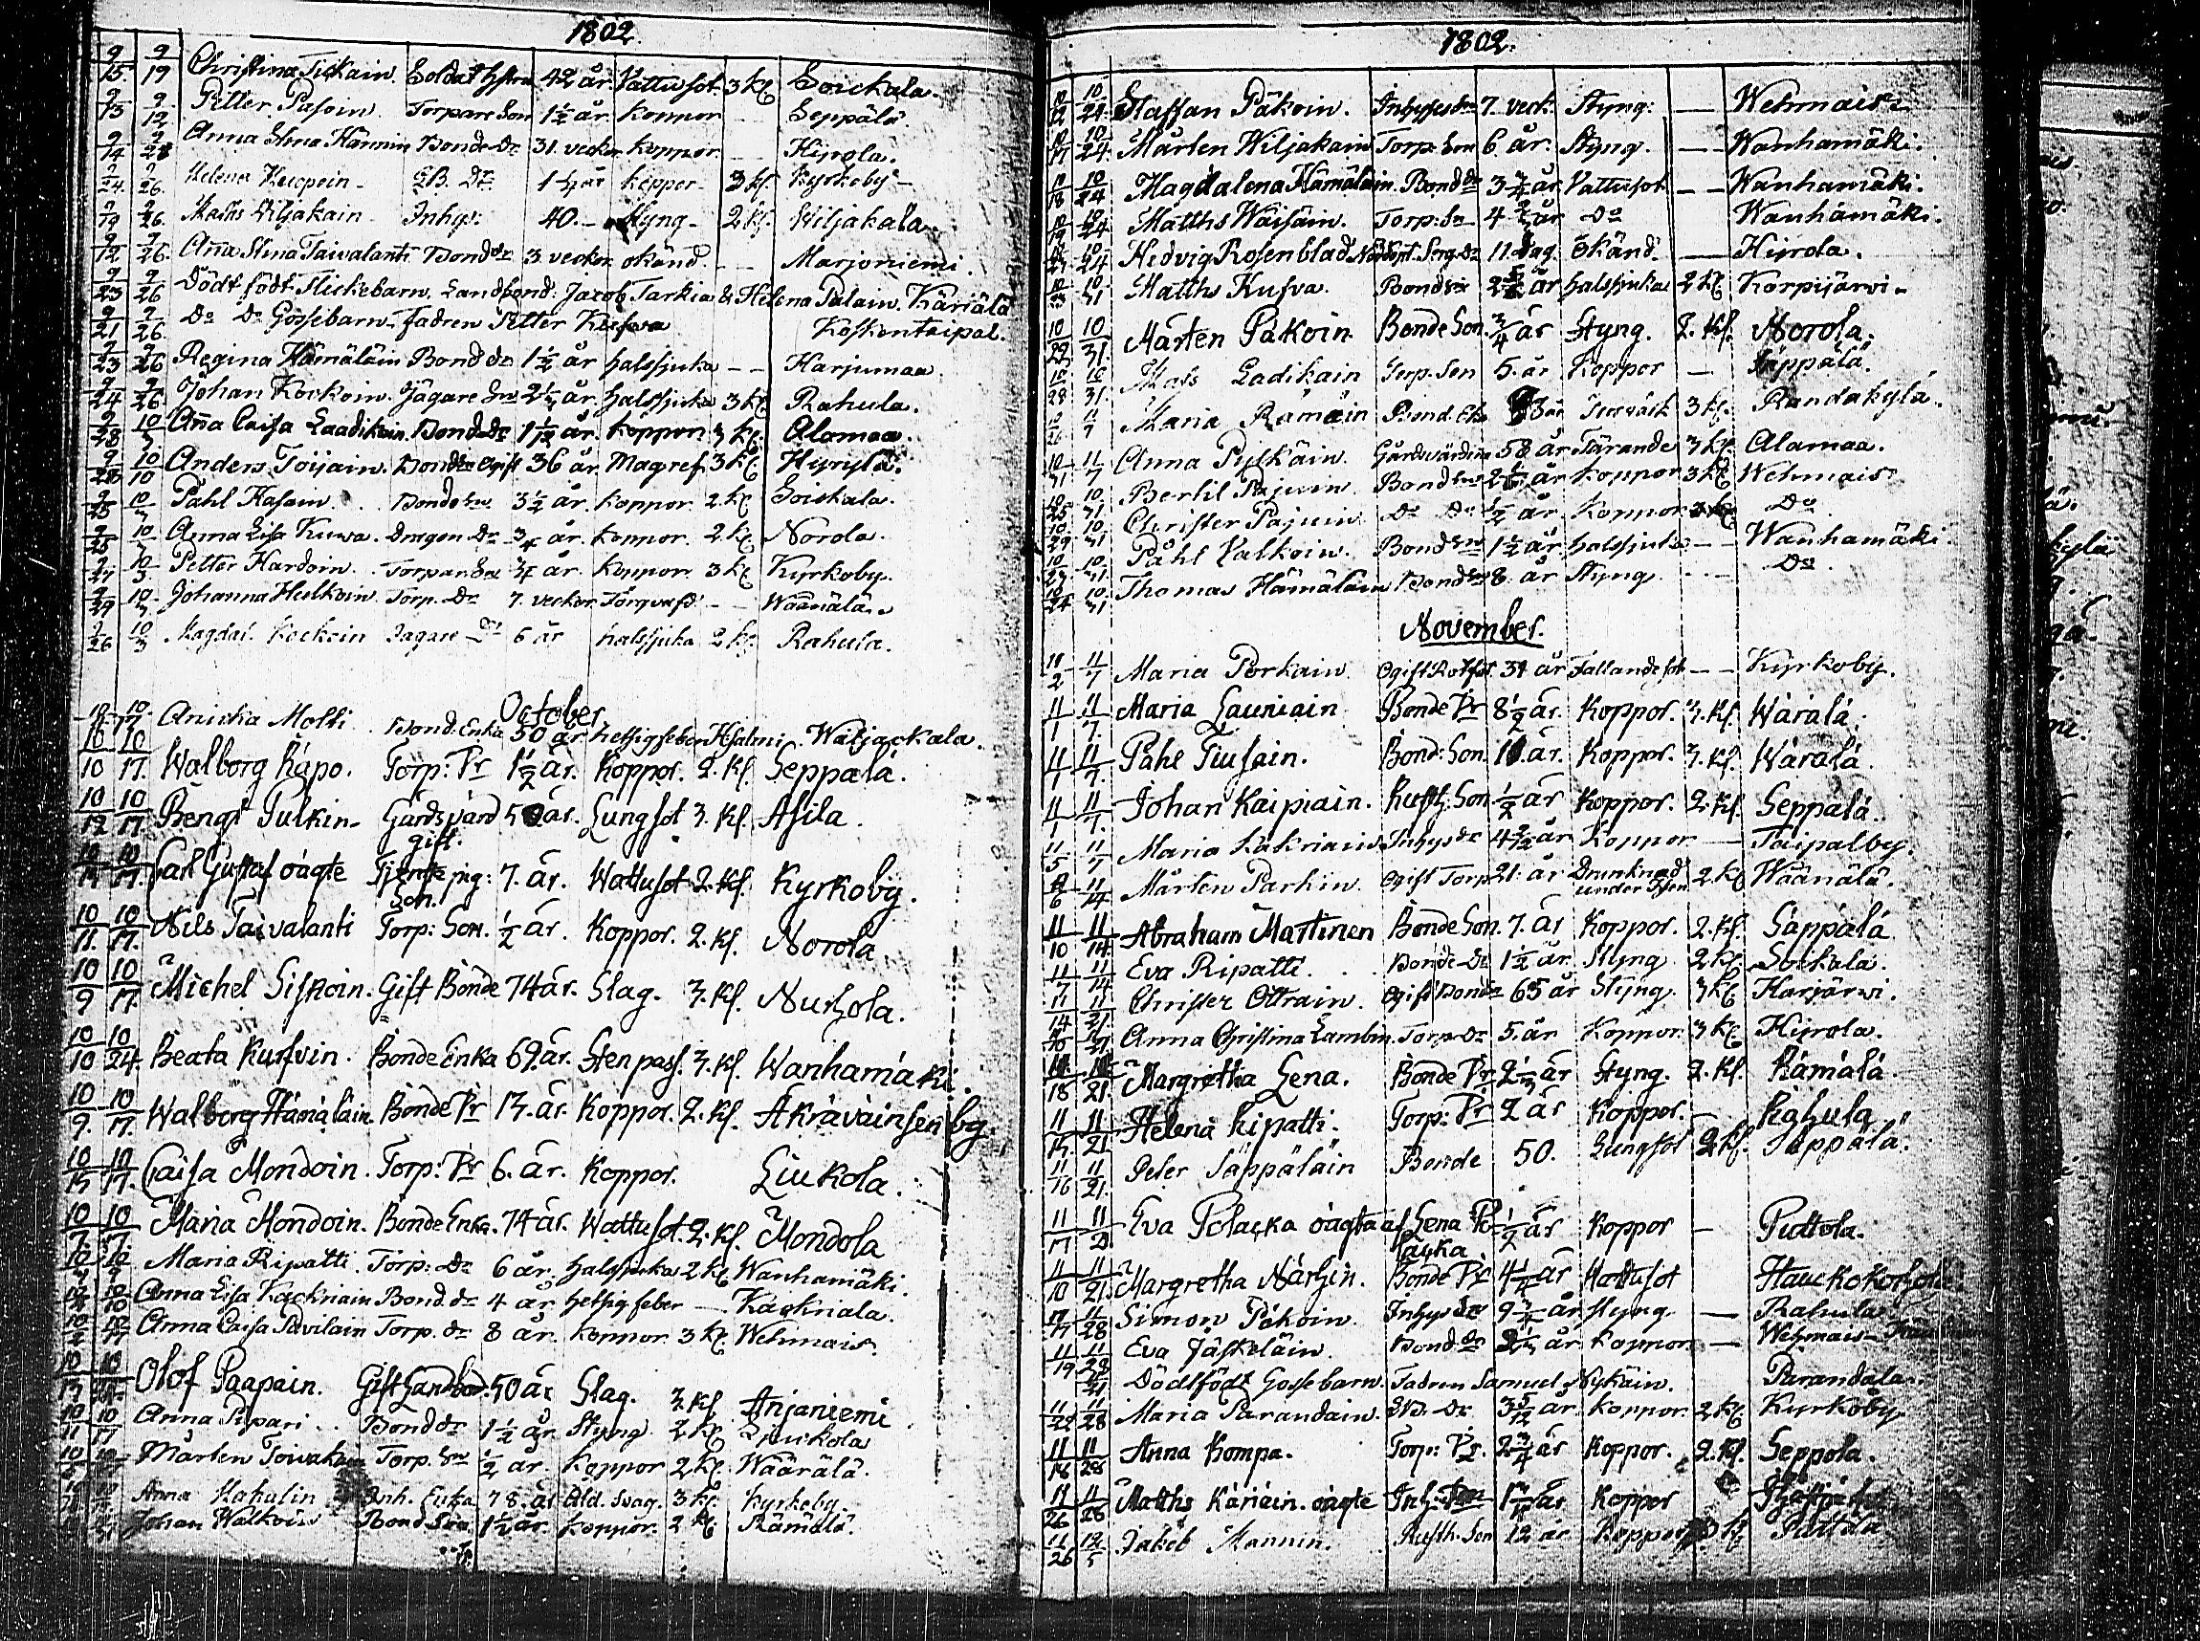 1802.
9/15 9/19 Christina Tickain. Soldat Hstru 42 år. Vattusot. 3 kl Soickala.
9/13 9/12 Petter Pasoin. Torpare Son 1½ år. Koppor Seppälä
9/14 9/28 Anna Stina Hännin Bonde Dr 31. veckor koppor. Hirola.
24. 9/26. Helena GB. Dr. koppor 3 kl. Kyrkoby
9/19 9/26. Maths Viljakain Inhys: 40. Styng 2 kl. Wiljakala
9/12 9/26. Anna Stina Taivalanti Bond Dr 3 veckor okänd. Marjoniemi.
9/23 9/26 Dödt födt Flickebarn. Landbond: Jacob Tarkia & Helena Palain. Käriälä
9/21 9/26. Do Do Gossebarn. Fadren Petter Koskentaipal.
9/23 9/26 Regina Hämäläin Bond dr 1½ år halssjuka Harjumaa
9/24 9/26. Johan Kockoin. Jägare Son år. halssjuka 3 kl Rahula.
9/28 10/3 Anna Caisa Laadikain Bonde Dr år. koppor 3 kl. Alamaa.
9/28 10/10 Anders Toijain. ogift 36 år. Magref. 3 kl Hyrylä.
9/25 10/3 Pähl Kasain. Bonde Sn 3½ år koppor 2 kl Soickala.
9/25 10/3 Anna Lisa Kuwa. Dragon Dr ¾ år. koppor. 2 kl. Norola.
10/3 Petter Hardoin. Torpar Son ¾ år. koppor. 3 kl Kyrkoby.
9/29 10/3 Johanna Hulkoin. Torp. Dr 7. veckor Wäänälä.
9/26 10/3 Magdal. Kockoin Jägare Dr 6 år halssjuka 2 kl. Rahula.
October.
10/17 Anicka Molli Bond. Enka 50 år hetsig feber Hjalmi Waljackala.
10/10 10/17. Walborg Räpo. Torp: Dr 1½ år. Koppor. 2. kl. Seppälä.
10/12 10/17. Bengt Pulkin. Gårdsvärd gift. 50 år. Lungsot 3. kl. Asila.
10/17. Carl Gustaf oägte Tjenste pig: Son. 7. år. Wattusot 2. kl. Kyrkoby.
10/11. 10/17. Nils Taivalanti Torp: Son. ½ år. Koppor. 2. kl. Norola
10/9 10/17. Michel Siskoin. Gift Bonde 74 år. Slag. 3. kl. Nurhola.
10/10 10/24. Beata Kurfvin. Bonde Enka 69. år. Sten pass. 3. kl. Wanhamäki.
10/9. 10/17. Walborg Hämäläin. Bonde Dr 13. år. Koppor. 2. kl. Akräväinsen by.
10/15 10/17. Caisa Mondoin. Torp: Dr 6. år. Koppor. Liukola.
10/7 10/17 Maria Mondoin. Bonde Enka. 74 år. Wattusot. 2. kl. Mondola
Maria Ripatti. Torp: Dr 6 år halssjuka 2 kl Wanhamäki.
Anna Lisa Kackriain Bond. dr 4 år hetsig feber Kackriala.
Anna Caisa Pavilain Torp. dr 8 år. koppor. 3 kl. Wehmais.
Olof Paapain. Gift Landbo. 50 år Slag. 3. kl Anjaniemi
10/11 10/17 Anna Pipari Bond dr 1½ år Styng 2 kl Liukola
Mårten Toivakain Torp. Sn ½ år. Koppor 2 kl. Wäärälä.
Anna Hakulin Inh. Enka 78. år Åld. Svag. 3 kl. Kyrkoby.
Johan Walkoin Bond Son 1½ år. koppor. 2 kl Rämälä.
1802.
10/12 10/24. Staffan Päkoin. Inhyses Sn 7. veck. Styng. Wehmais
10/17 10/24. Mårten Wiljakain Torp. Son 6. år. Styng. Wanhamäki.
10/18 10/24 Magdalena Hämäläin. Bond dr 3¾ år Vattusot Wanhamäki.
10/19 10/24 Matths Wäisäin. Torp: Sn 4 år Do Wanhamäki.
10/24 Hedvig Rosenblad Serg. Dr 11. dag. Okänd. Hirola.
10/23 10/31 Matths Kufva. Bond Sn år halssjuka 2 kl. Korpijärvi
10/29 10/31. Mårten Päkoin Bonde Son. ¾ år Styng. 2. kl. Norola.
10/28 10/31. Mats Ladikain Torp. Son 5. år Koppor Säppälä.
11/7 Maria Rämäin Bond. Enka 3 kl. Randakylä.
10/31 11/7 Anna Pylkäin. Gårdsvärdina 58 år Tärande 3 kl. Alamaa.
10/25 10/31 Bertil Pajuin Bond Son år koppor 3 kl Wehmais
10/29 10/31 Christer Pajuin Do Do ½ år Koppor Do
10/31 Påhl Valkoin. Bond Sn 1½ år halssjuka Wanhamäki
10/24 10/31 Thomas Hämäläin Bond Sn 8. år Styng. Do.
November.
11/2 11/7 Maria Porkain Ogift 34 år Fallandesot Kyrkoby.
11/1 11/7. Maria Launiain Bonde Dr 8½ år. Koppor. 3. kl. Wärälä.
11/1 11/7. Påhl Tiusain. Bond: Son. år. Koppor. 3. kl. Wärälä.
11/1 11/7. Johan Kaipiain. Rusth. Son ½ år Koppor. 2. kl. Seppälä.
11/5 11/7 Maria Käkriain Inhys dr år Koppor Taipalby.
11/6 11/14 Mårten Parkin. Ogift Torp 21. år Drunknad under Isen 2. kl Wäänälä.
11/10 11/14. Abraham Martinen Bonde Son. 7. år Koppor. 2. kl. Säppälä
11/7 11/14 Eva Ripatti. Bonde Dr 1½ år Styng 2 kl. Sockala.
11/14 11/21. Christer Ottrain. Ogift Bonde 65 år Styng. 3 kl Harjärvi.
11/21 Anna Christina Lambin. Torp Dr 5. år Koppor. 3 kl. Hirola.
11/18 11/21. Margretha Lena. Bonde Dr 2½ år Styng. 2. kl. Rämälä.
11/15 11/21 Helena Ripatti. Torp: Dr 2 år Koppor. Rahula
11/16 11/21. Peter Säppäläin Bonde 50. Lungsot 2 kl. Seppälä.
11/17 Eva Polacka oägta af Lena Polacka ½ år Koppor Puttola.
11/10 11/21. Margretha Närhin. Bonde Dr 4¼ år Wattusot
11/17 11/28 Simon Päkoin. Inhys Sn 9¾ år Styng. Rahula
11/19 11/28 Eva Jäskeläin. Bond dr år Koppor Wehmais
11/21 Dödtfödt Gossebarn. Fadren Samuel Nykäin. Parandala.
11/22 11/28 Maria Parandain. GB. Dr 3 5/12 år koppor 2 kl Kyrkoby
11/18 11/28 Anna Kompa. Torp: Dr. 2¾ år Koppor. 2. kl. Seppola.
11/26 11/28 Matths Käriäin. oägte år Koppor
11/26 12/5 Jakob Hannin. Rusth. Son 12 år Koppor kl Puttola